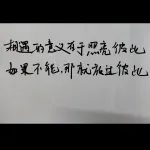 相遇的意义在于照亮彼此
如果不能,那就放过彼此